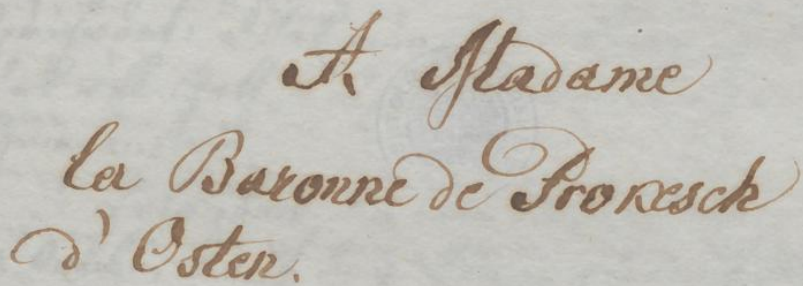 A Madame
la Baronne de Prokesch
d'Osten.